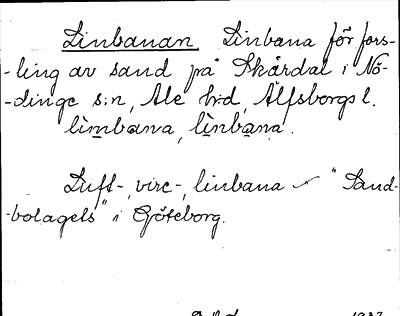 Linbanan Linbana för fors-
-ling av sand på Skårdal i Nö-
-dinge s:n, Ale h:d, Älfsborgs l.
lìmbana, lìnbana.
Luft-, vire-, linbana ✓ "Sand-
-bolagels" i Göteborg.